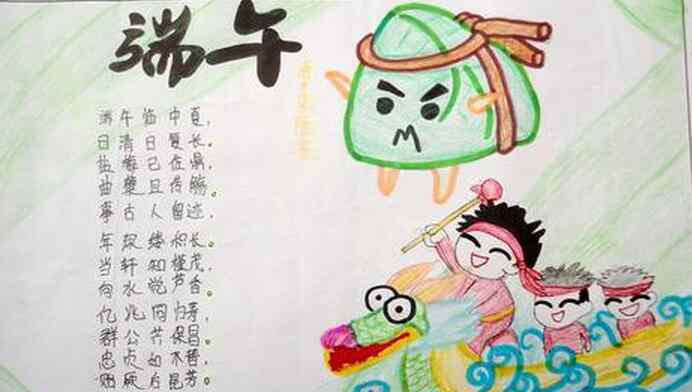 端午
端午临中夏，
日清日复长。
盐梅已佐鼎，
曲糵且传觞。
事古人留迹，
年深缕积长。
当轩知槿茂，
向水觉芦香。
亿兆同归寿，
群公共保昌。
忠贞如不替，
贻厥后昆芳。